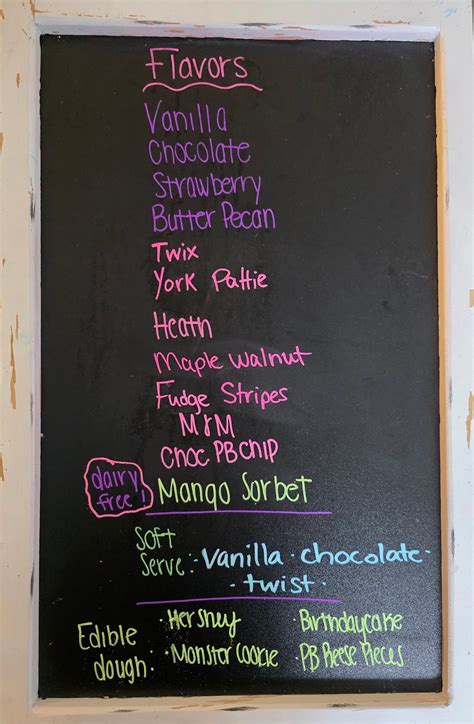 Flavors
Vanilla
Chocolate
Strawberry
Butter Pecan
Twix
York Pattie
Heath
Maple Walnut
Fudge Stripes
M&M
Choc PB Chip
dairy
free!
Mango Sorbet
Soft
Serve: Vanilla · chocolate ·
· twist ·
Edible
dough:
· Hershey · Birthdaycake
· Monster Cookie · PB Reese Pieces